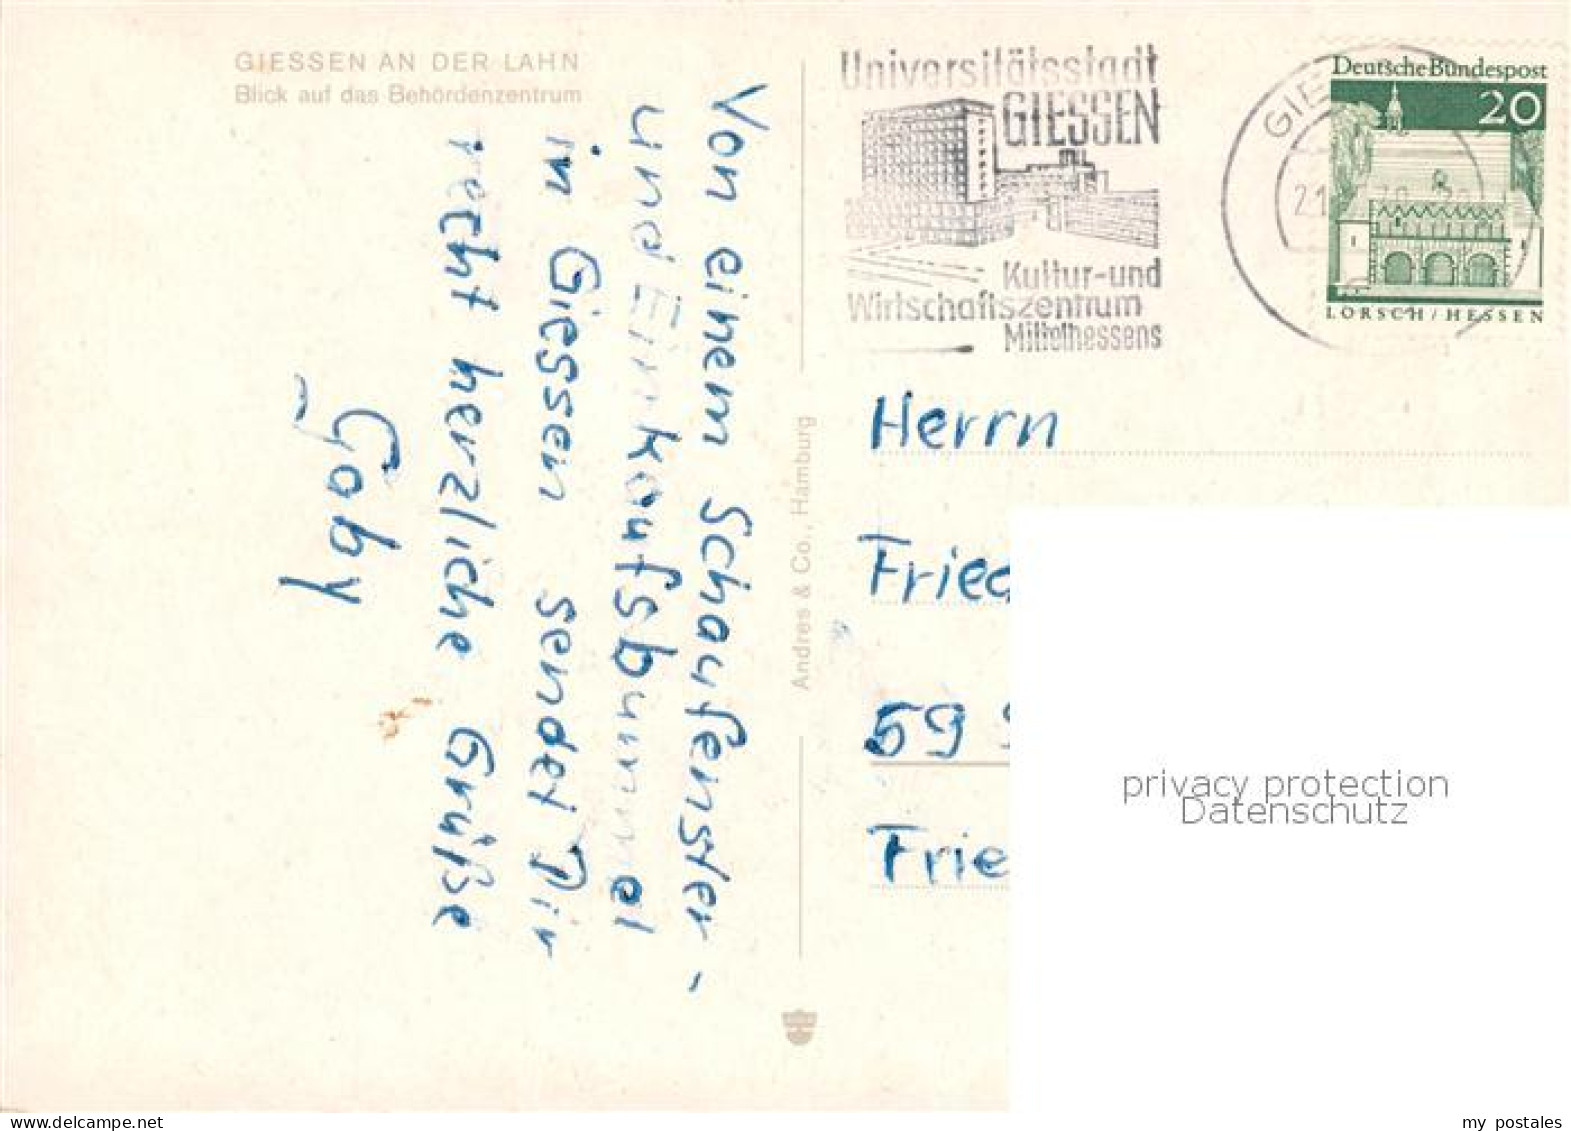 GIESSEN AN DER LAHN
Blick auf das Behördenzentrum
Von einem Schaufenster-
und Einkaufsbummel
in Giessen sendet Dir
recht herzliche Grüße
Andres & Co., Hamburg
Universitätsstadt
GIESSEN
Kultur-und
Wirtschaftszentrum
Mittelhessens
GIE
21
Deutsche Bundespost
20
LORSCH/HESSEN
Herrn
Fried
59
Frie
privacy protection
Datenschutz
www.delcampe.net
my postales